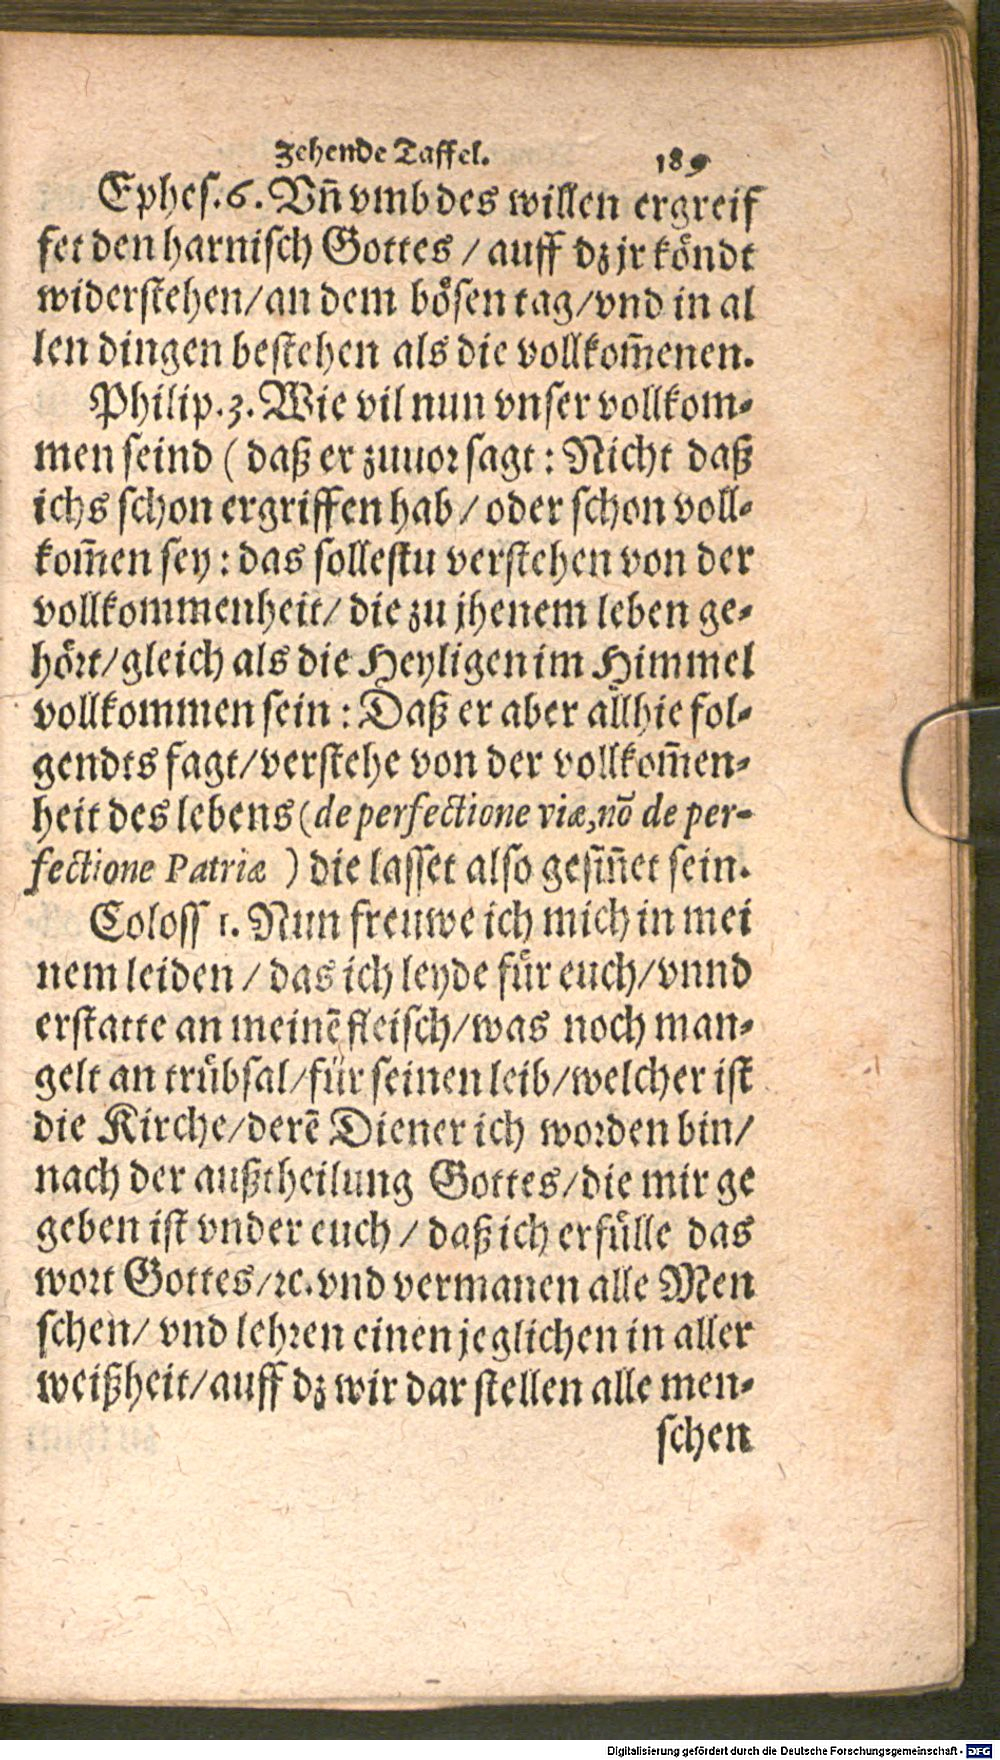 Zehende Taffel. 189
Ephes. 6. Vñ vmb des willen ergreif
fet den harnisch Gottes / auff dz jr köndt
widerstehen / an dem bösen tag / vnd in al
len dingen bestehen als die vollkom̃enen.
Philip. 3. Wie vil nun vnser vollkom-
men seind ( daß er zuuor sagt : Nicht daß
ichs schon ergriffen hab / oder schon voll-
kom̃en sey : das sollestu verstehen von der
vollkommenheit / die zu jhenem leben ge-
hört / gleich als die Heyligen im Himmel
vollkommen sein : Daß er aber allhie fol-
gendts sagt / verstehe von der vollkom̃en-
heit des lebens (de perfectione viæ, nō de per-
fectione Patriæ ) die lasset also gesiñet sein.
Coloss 1. Nun freuwe ich mich in mei
nem leiden / das ich leyde für euch / vnnd
erstatte an meinē fleisch / was noch man-
gelt an trübsal / für seinen leib / welcher ist
die Kirche / derē Diener ich worden bin /
nach der außtheilung Gottes / die mir ge
geben ist vnder euch / daß ich erfülle das
wort Gottes / ꝛc. vnd vermanen alle Men
schen / vnd lehren einen jeglichen in aller
weißheit / auff dz wir dar stellen alle men-
schen
Digitalisierung gefördert durch die Deutsche Forschungsgemeinschaft - DFG